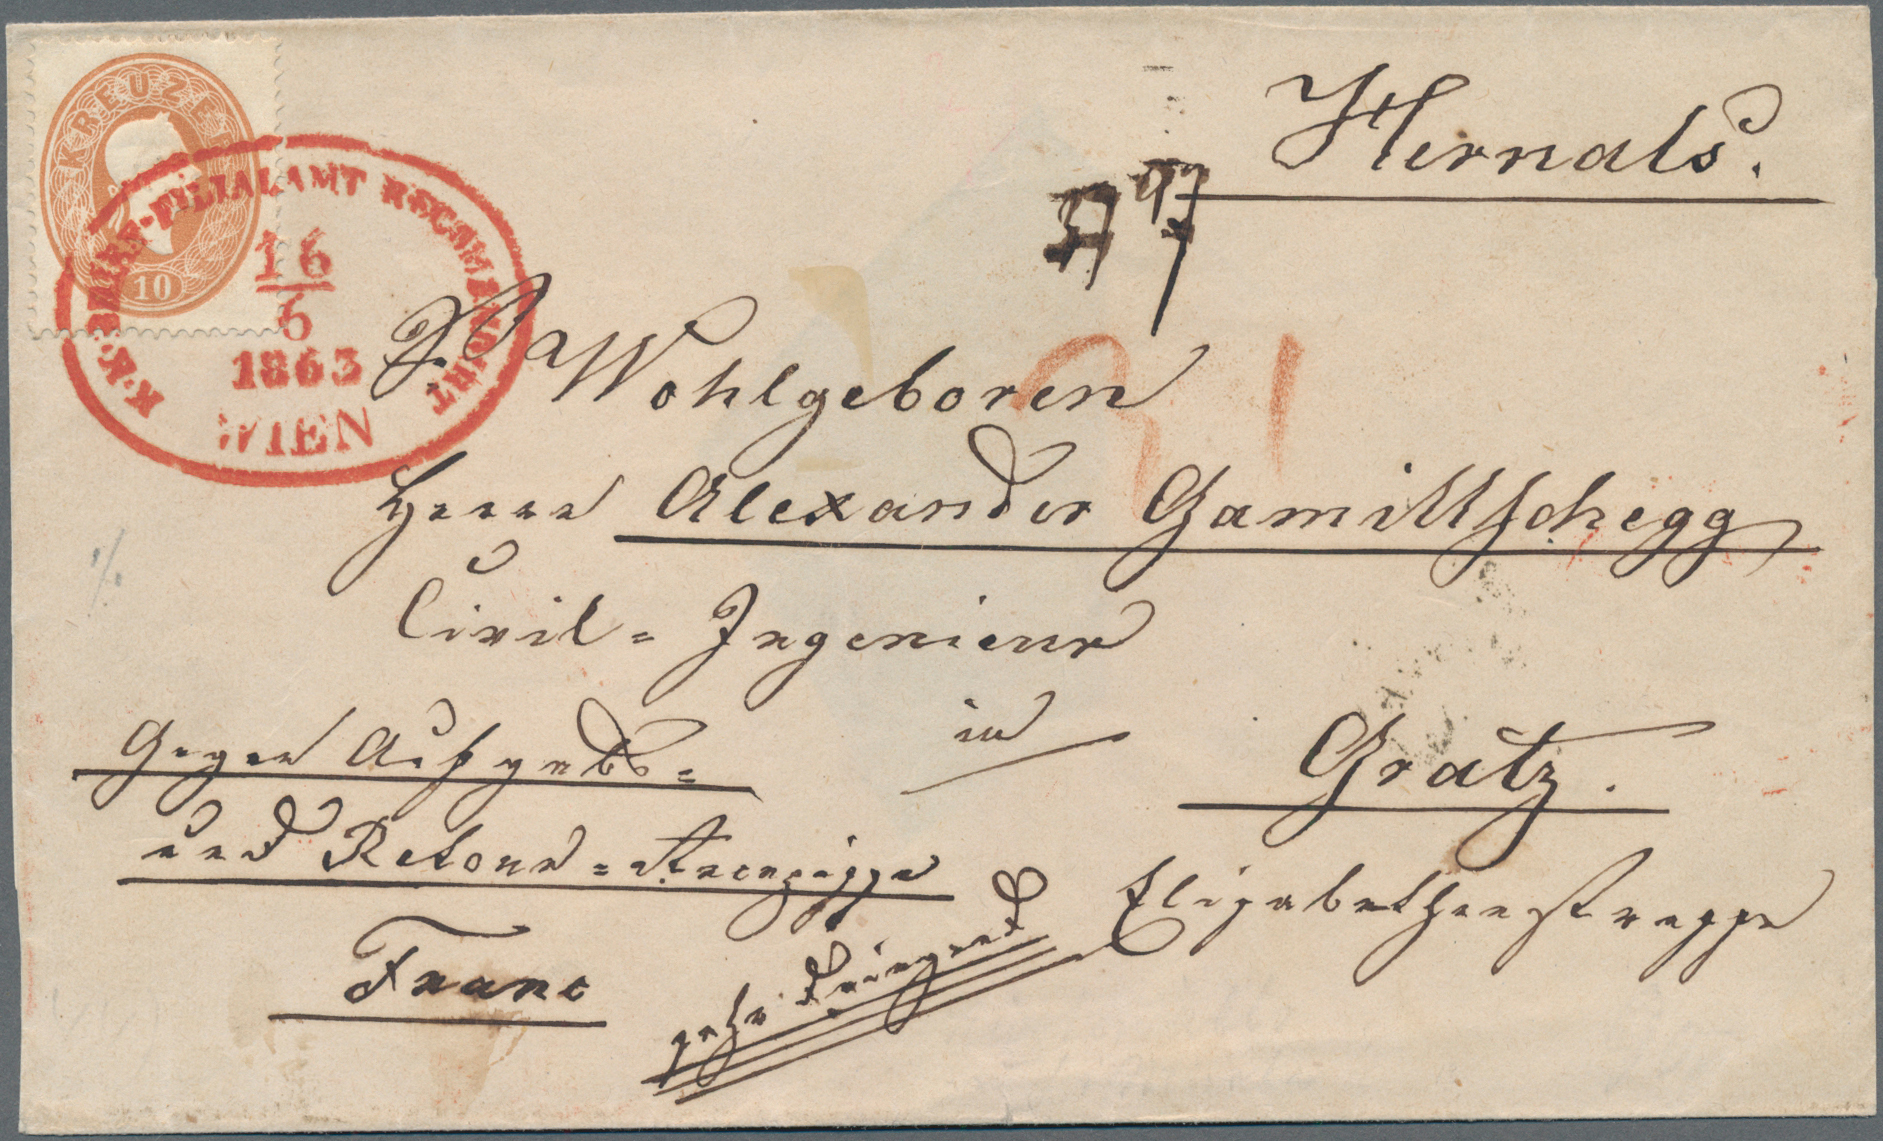 KREUZER
10
K.K. BRIEF-FILIALAMT RECOMANDIRT
16
6
1863
WIEN
Hernals.
Wohlgeboren
Herrn Alexander Gamillschegg
Civil = Ingenieur
in
Gratz.
Elisabethenstrasse
Gegen Aufgabs =
und Retour = Recepisse
Franc
sehr dringend